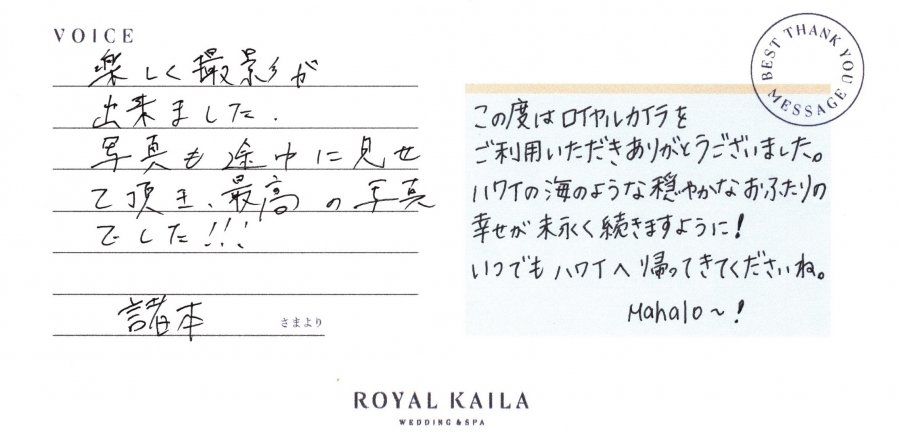 VOICE
楽しく撮影が
出来ました.
写真も途中に見せ
て頂き、最高の写真
でした!!!
諸本
さまより
BEST THANK YOU MESSAGE
この度はロイヤルカイラを
ご利用いただきありがとうございました。
ハワイの海のような穏やかなおふたりの
幸せが末永く続きますように!
いつでもハワイへ帰ってきてくださいね。
Mahalo~!
ROYAL KAILA
WEDDING & SPA